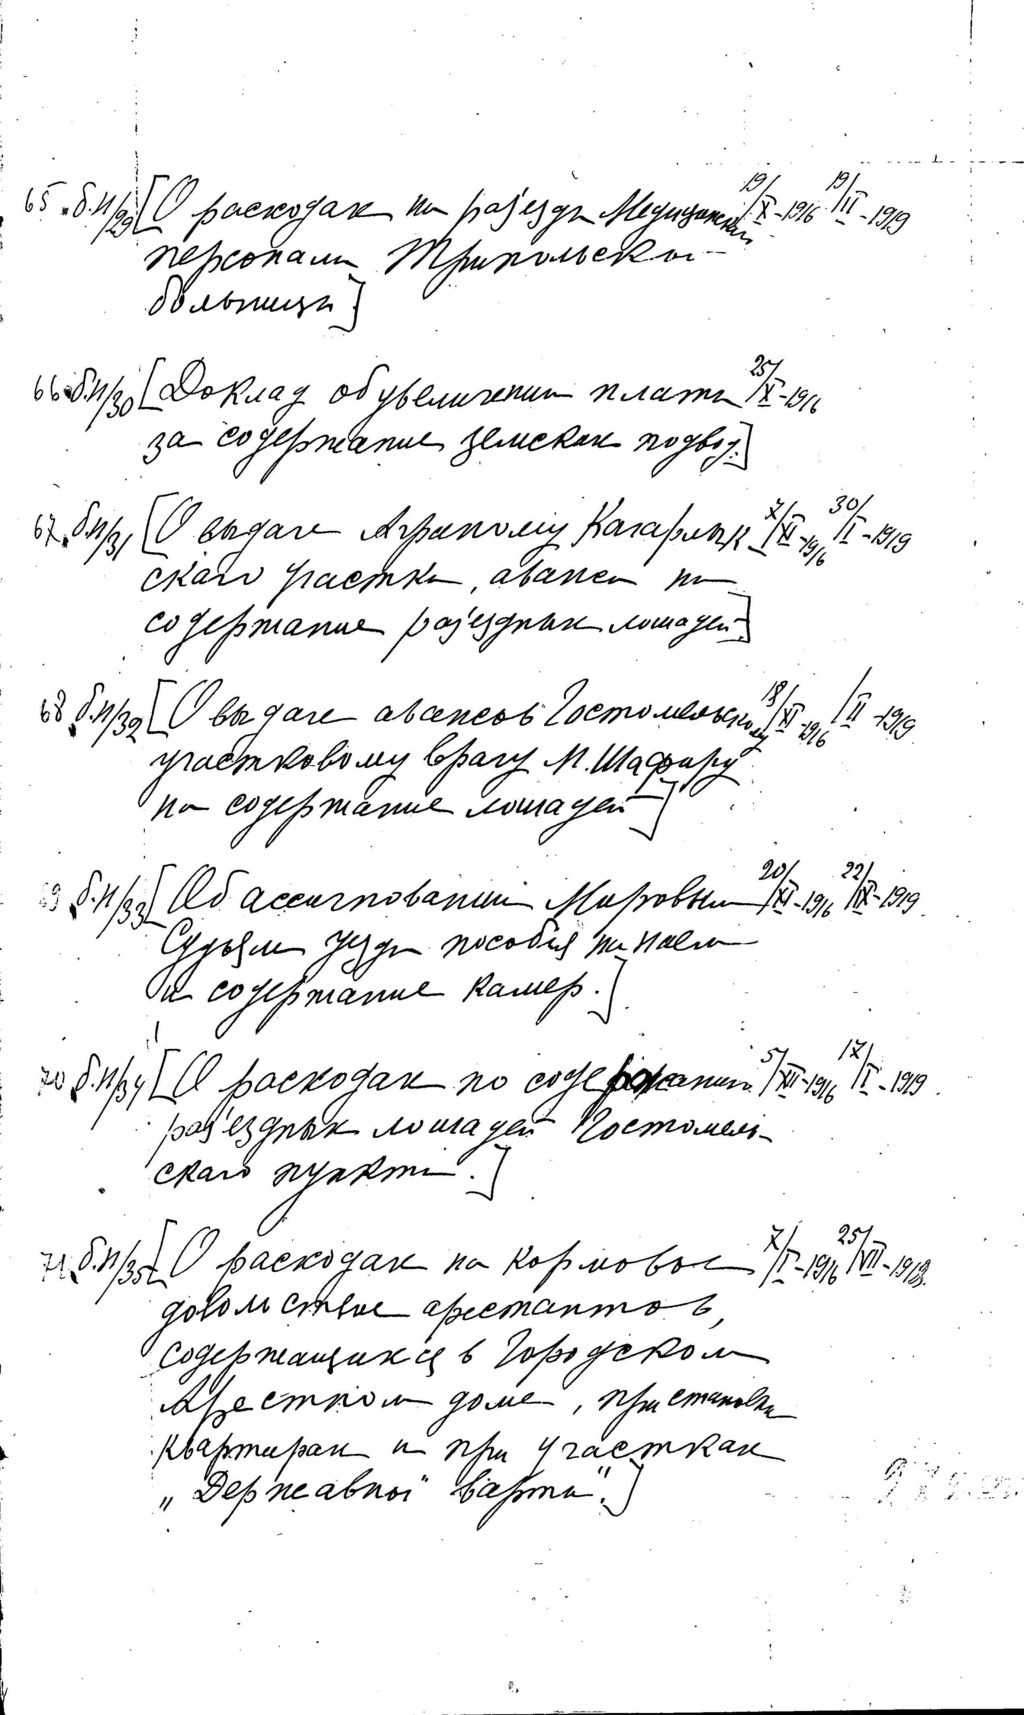 65. б.н/29 [О расходах на разъезды Медицинского 19/X-1916 19/II-1919
персонала Трипольской
больницы]
66 б.н/30 [Доклад об увеличении платы 25/X-1916
за содержание земских подвод.]
67. б.н/31 [О выдаче Агроному Кагарлык- 7/XI-1916 30/I-1919
скаго участка, аванса на
содержание разъездных лошадей]
68 б.н/32 [О выдаче авансов Гостомельскому 18/XI-1916 /II-1919
участковому врачу М. Шафиру
на содержание лошадей]
69 б.н/33 [Об ассигновании Мировым 20/XI-1916 22/IX-1919
Судьям уезда пособия на наем
и содержание камер.]
70 б.н/34 [О расходах по содержанию 5/XII-1916 17/I-1919
разъездных лошадей Гостомель-
скаго пункта.]
71. б.н/35 [О расходах на кормовое 7/I-1916 25/VII-1918г.
довольствие арестантов,
содержащихся в Городском
Арестном доме, при становых
квартирах и при участках
„Державной варты".]